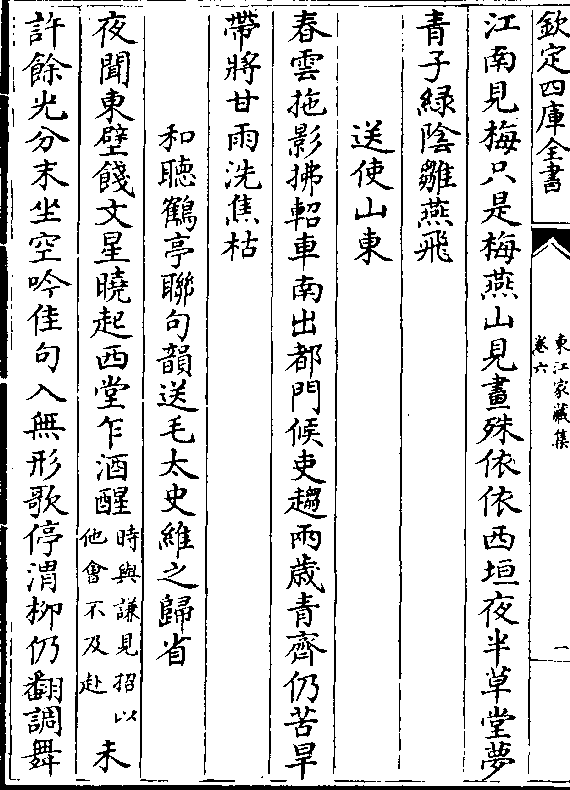 欽定四庫全書
東江家藏集
卷六
一
江南見梅只是梅燕山見畫殊依依西垣夜半草堂夢
青子緑陰雛燕飛
送使山東
春雲拖影拂軺車南出都門候吏趨兩歲青齊仍苦旱
帶將甘雨洗焦枯
和聽鶴亭聯句韻送毛太史維之歸省
夜聞東壁餞文星曉起西堂乍酒醒時與謙見招以他會不及赴未
許餘光分末坐空吟佳句入無形歌停渭柳仍翻調舞